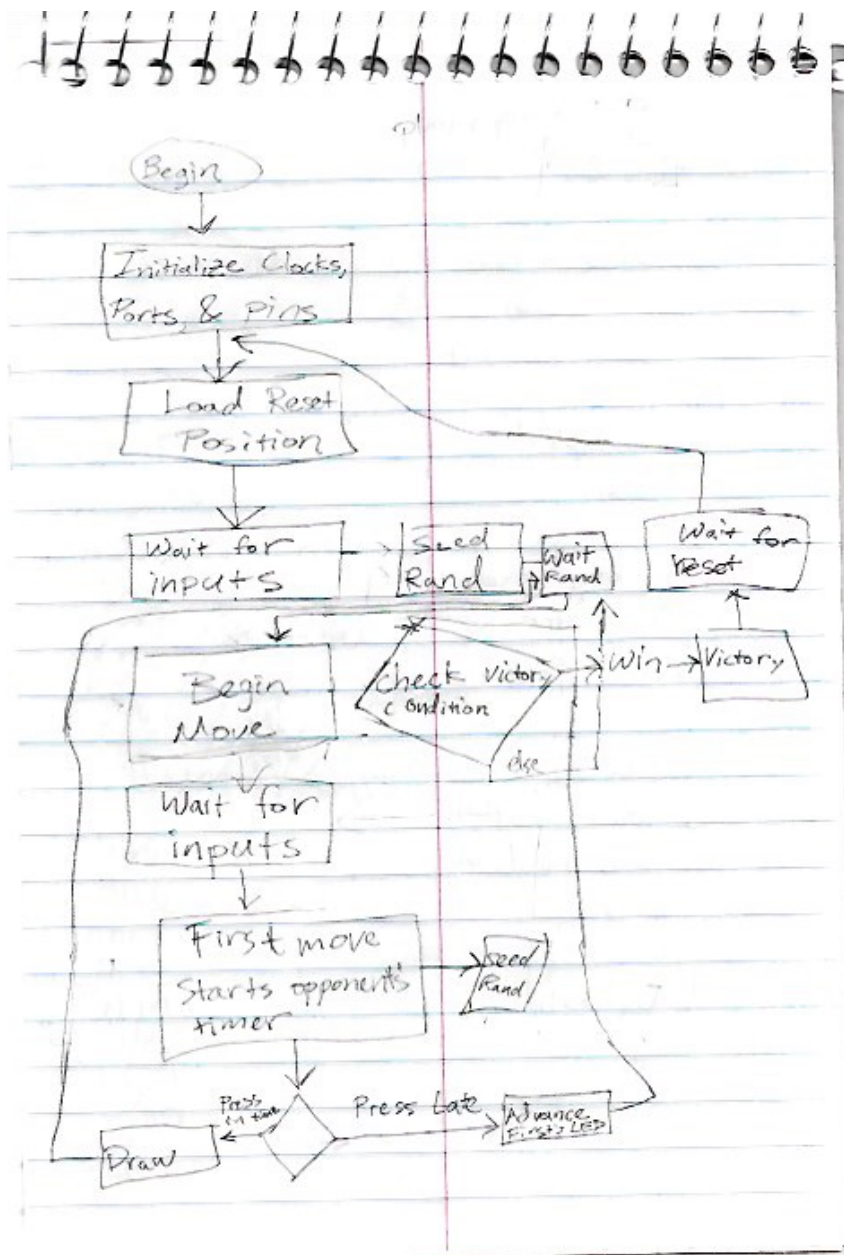 Begin
Initialize Clocks,
Ports, & pins
Load Reset
Position
Wait for
inputs
Seed
Rand
Wait
Rand
Wait for
reset
Begin
Move
Check Victory
Condition
Win
Victory
else
Wait for
inputs
First move
Starts opponent's
timer
Seed
Rand
Press
in time
Press Late
Advance
First's LED
Draw